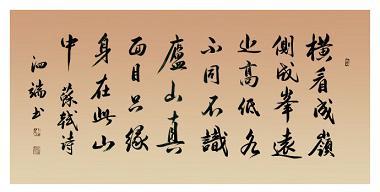 橫看成嶺
側成峯遠
近高低各
不同不識
廬山真
面目只緣
身在此山
中 蘇軾詩
泗端书